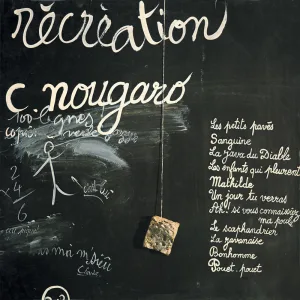 récrèation
c. nougaro
100 lignes
copie
verte
Les petits pavés
Sanguine
La java du Diable
Les enfants qui pleurent
Mathilde
Un jour tu verras
Ah! si vous connaissiez
ma poule
Le scaphandrier
La javanaise
Bonhomme
Pouet. pouet
2
4
6
c'est lui
moi m'sieu